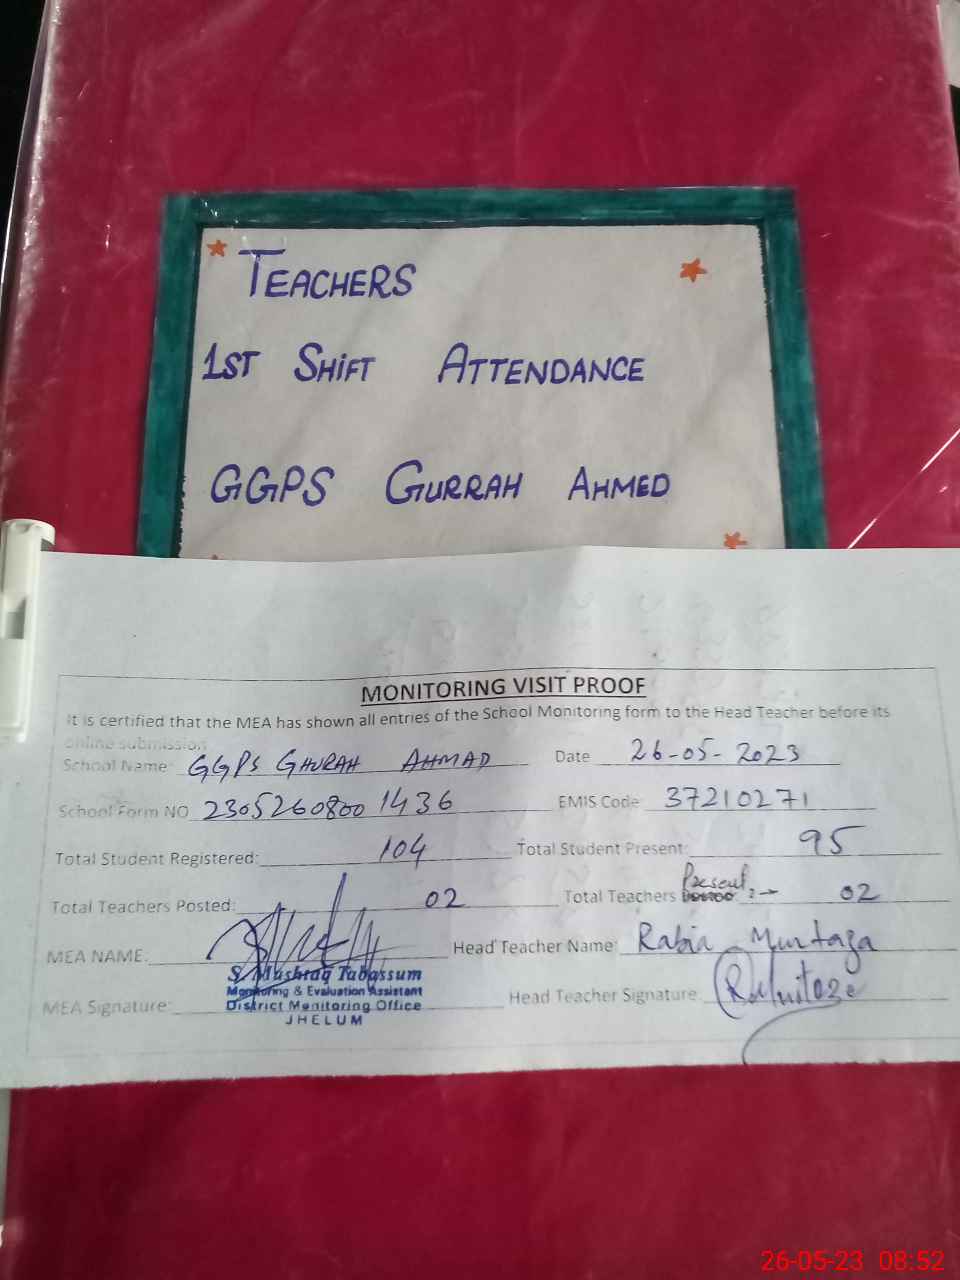 TEACHERS
1ST SHIFT ATTENDANCE
GGPS GURRAH AHMED
MONITORING VISIT PROOF
It is certified that the MEA has shown all entries of the School Monitoring form to the Head Teacher before its
online submission
School Name: GGPS GHURAH AHMAD Date 26-05-2023
School Form NO 2305260800 1436 EMIS Code: 37210271
Total Student Registered: 104 Total Student Present: 95
Total Teachers Posted: 02 Total Teachers Present :- 02
MEA NAME: Head Teacher Name: Rabia Murtaza
S. Mushtaq Tabassum
Monitoring & Evaluation Assistant
MEA Signature: District Monitoring Office Head Teacher Signature: RMurtaza
JHELUM
26-05-23 08:52